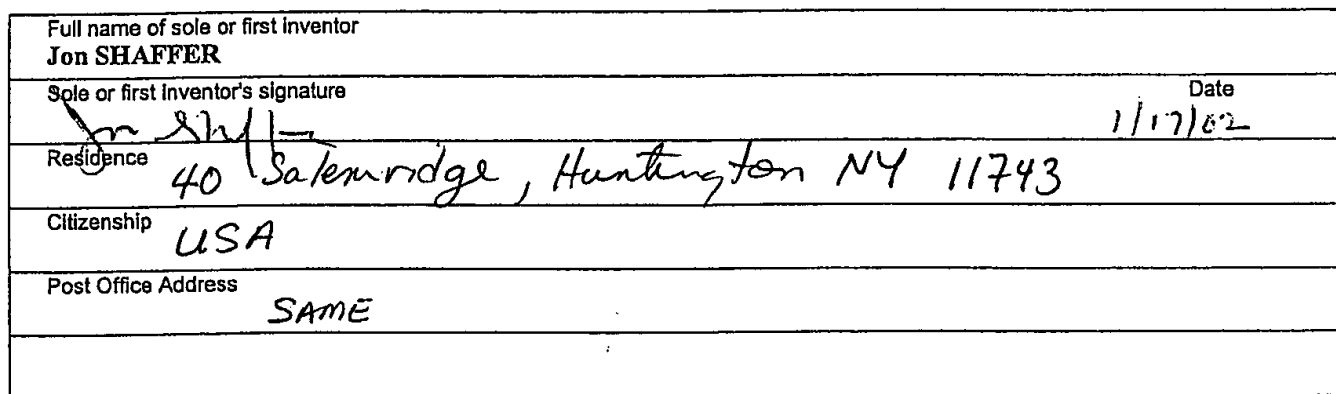 Full name of sole or first inventor
Jon SHAFFER
Sole or first inventor's signature Date
1/17/02
Residence 40 Salemridge, Huntington NY 11743
Citizenship USA
Post Office Address
SAME